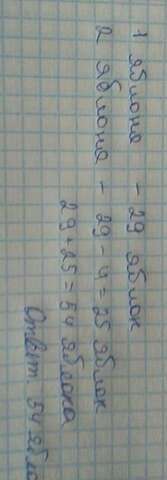 1 яблоня - 29 яблок
2 яблоня - 29 - 4 = 25 яблок
29 + 25 = 54 яблока
Ответ: 54 ябло